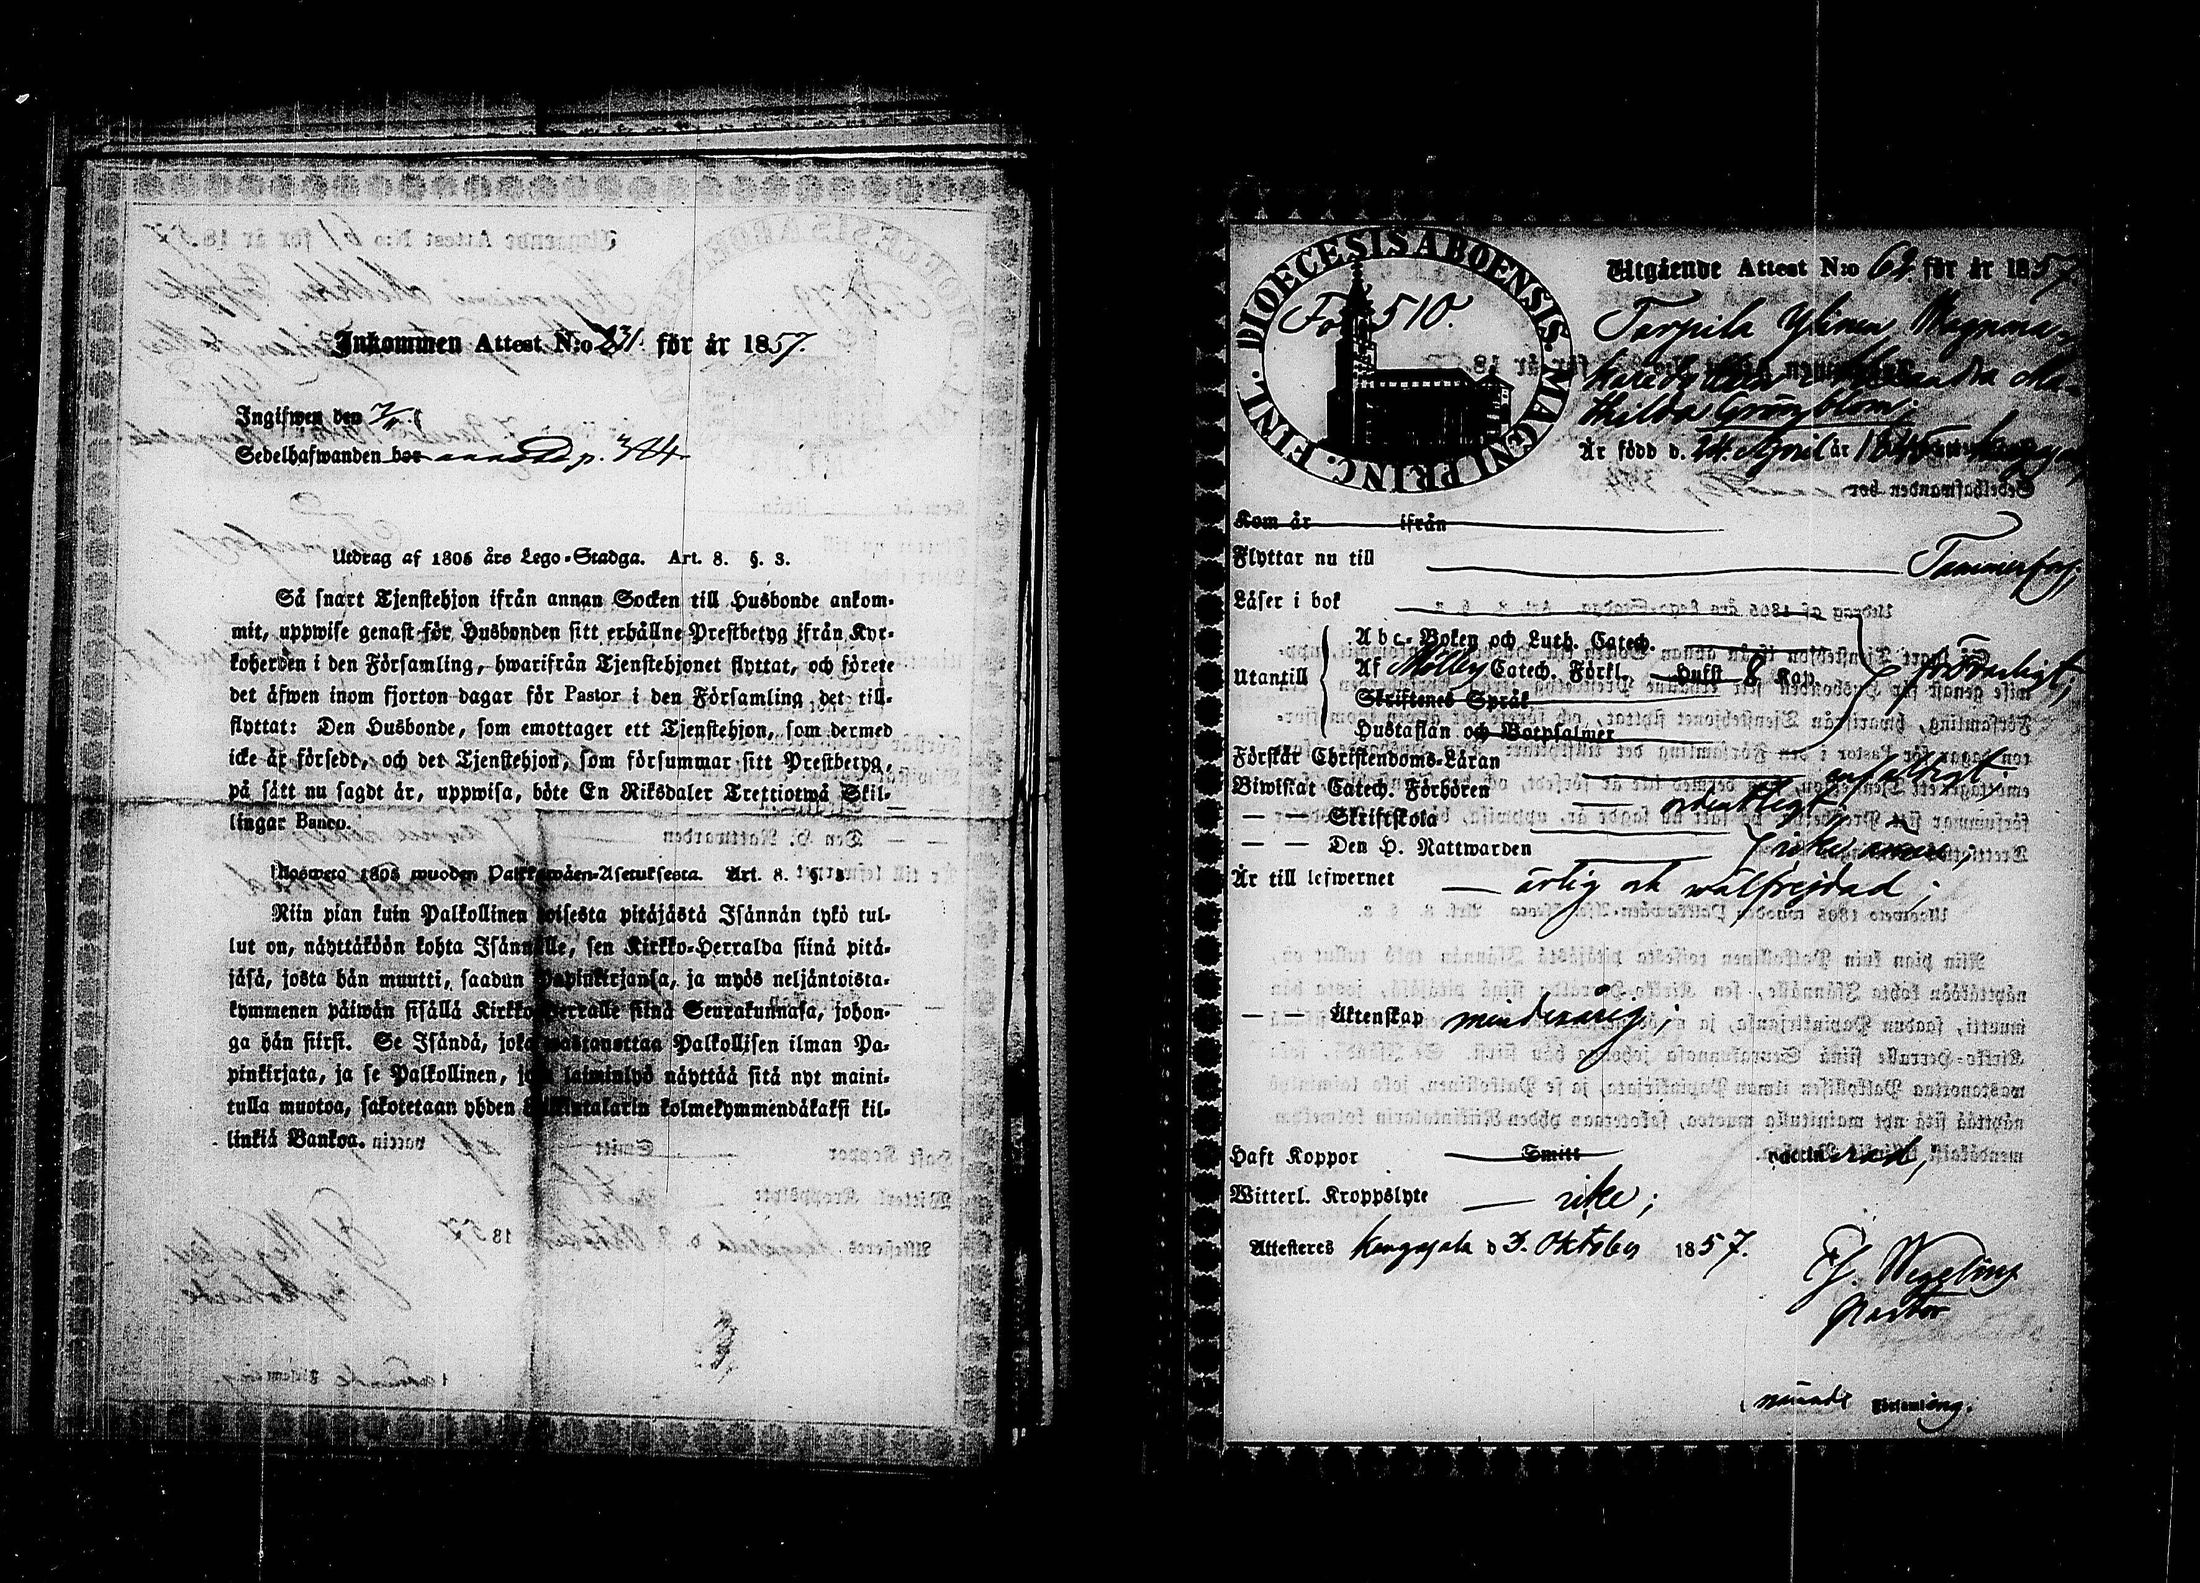 Inkommen Attest N:o 231. för år 1857.
Ingifwen den
Sedelhafwanden bor p. 384
Utdrag af 1805 års Lego-Stadga. Art. 8. §. 3.
Så snart Tjenstehjon ifrån annan Socken till Husbonde ankom-
mit, uppwise genast för Husbonden sitt erhållne Prestbetyg ifrån Kyr-
koherden i den Församling, hwarifrån Tjenstehjonet flyttat, och förete
det äfwen inom fjorton dagar för Pastor i den Församling det till-
flyttat: Den Husbonde, som emottager ett Tjenstehjon, som dermed
icke är försedt, och det Tjenstehjon, som försummar sitt Prestbetyg,
på sått nu sagdt är, uppwisa, böte En Riksdaler Trettiotwå Skil-
lingar Banco.
Ulosweto 1805 wuoden Palkkawäen-Asetuksesta. Art. 8. §. 3.
Niin pian kuin Palkollinen toisesta pitäjästä Isännän tykö tul-
lut on, näyttäköön kohta Isännälle, sen Kirkko-Herralda siinä pitä-
jäsä, josta hän muutti, saadun Papinkirjansa, ja myös neljäntoista-
kymmenen päiwän sisällä Kirkko-Herralle siinä Seurakunnasa, johon-
ga hän siirsi. Se Isändä, joka wastanottaa Palkollisen ilman Pa-
pinkirjata, ja se Palkollinen, joka laiminlyö näyttää sitä nyt maini-
tulla muotoa, sakotetaan yhden Riikintalarin kolmekymmendäkaksi kil-
linkiä Bankoa.
DIOECESIS ABOENSIS. MAGNI PRINC. FINL.
Fol 510.
Utgående Attest N:o 62 för år 1857
Tarpila Ylinen Magnus
Alexandra Ma-
thilda Grönblom;
Är född d. 24 April år 1845
Kom år ifrån
Flyttar nu till Tammerfors;
Läser i bok
Utantill
Abc-Boken och Luth. Catech.
Af Möllers Catech. Förkl. Hufst 8 Kap
Skriftenes Språk
Hustaflan och Botpsalmer
försvarligt;
Förstår Christendoms-Läran enfaldigt;
Biwistat Catech. Förhören ordentligt;
— — Skriftskola
— — Den H. Nattwarden icke
Är till lefwernet ärlig och wälfrejdad;
— — Äktenskap minderårig;
Haft Koppor Smitt vaccinerad,
Witterl. Kroppslyte icke;
Attesteres Kangasala d 3. Oktober 1857.
Wegelius
Pastor
i nämnde Församling.